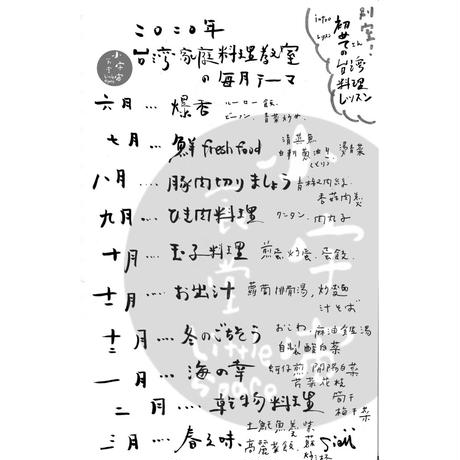 二〇二〇年
台湾家庭料理教室
の毎月テーマ
別室!
intro
レッスン
初めての
台湾
料理
レッスン
六月…爆香 ルーロー飯.
ビーフン. 青菜炒め.
七月…鮮 fresh food 清蒸魚
燙青菜
八月….豚肉切りましょう 青椒肉絲.
九月…ひき肉料理 ワンタン. 肉丸子
十月…玉子料理 煎蛋 炒蛋. 蛋餃
十一月….お出汁 蘿蔔排骨湯, 炒麺
汁そば
十二月….冬のごちそう おこわ. 麻油雞湯
自製酸白菜
一月….海の幸 蚵仔煎 開陽白菜
芹菜花枝
二月….乾物料理 筍干
梅干菜
三月…春之味. 土魠魚羹
高麗菜飯.
小宇宙食堂
Little
Space